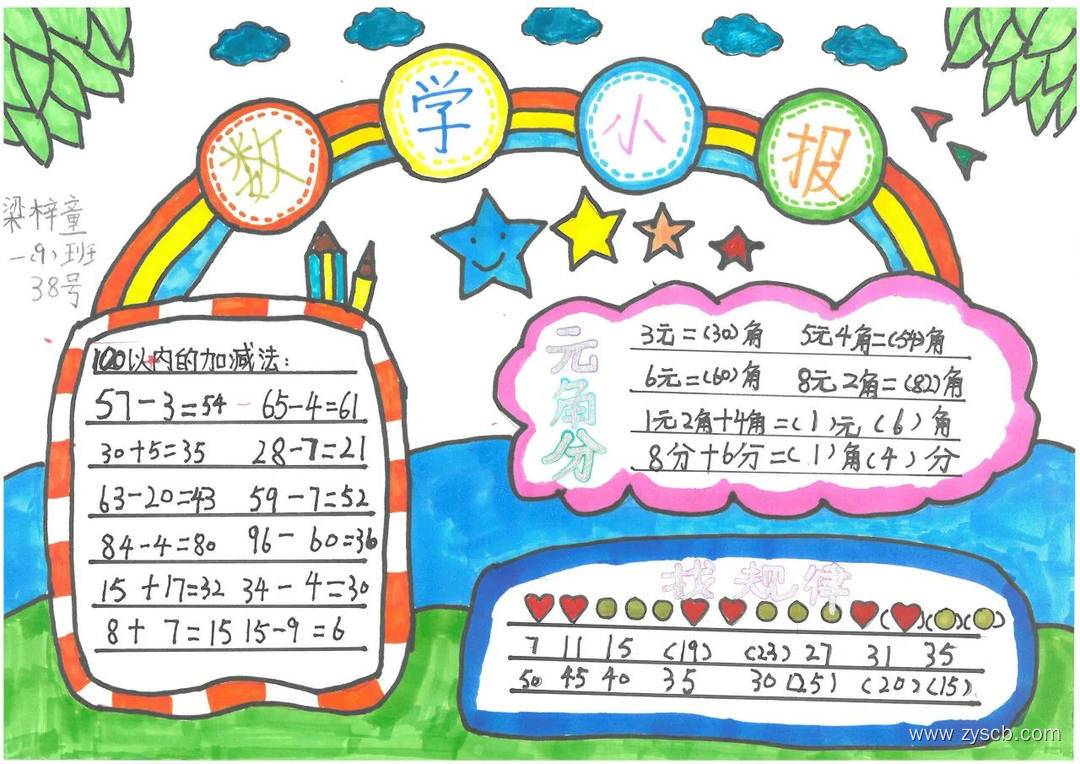 数学小报
梁梓童
一(9)班
38号
100以内的加减法:
57-3=54 65-4=61
30+5=35 28-7=21
63-20=43 59-7=52
84-4=80 96-60=36
15+17=32 34-4=30
8+7=15 15-9=6
元角分
3元=(30)角 5元4角=(54)角
6元=(60)角 8元2角=(82)角
1元2角+4角=(1)元(6)角
8分+6分=(1)角(4)分
找规律
7 11 15 (19) (23) 27 31 35
50 45 40 35 30 (25) (20) (15)
www.zyscb.com